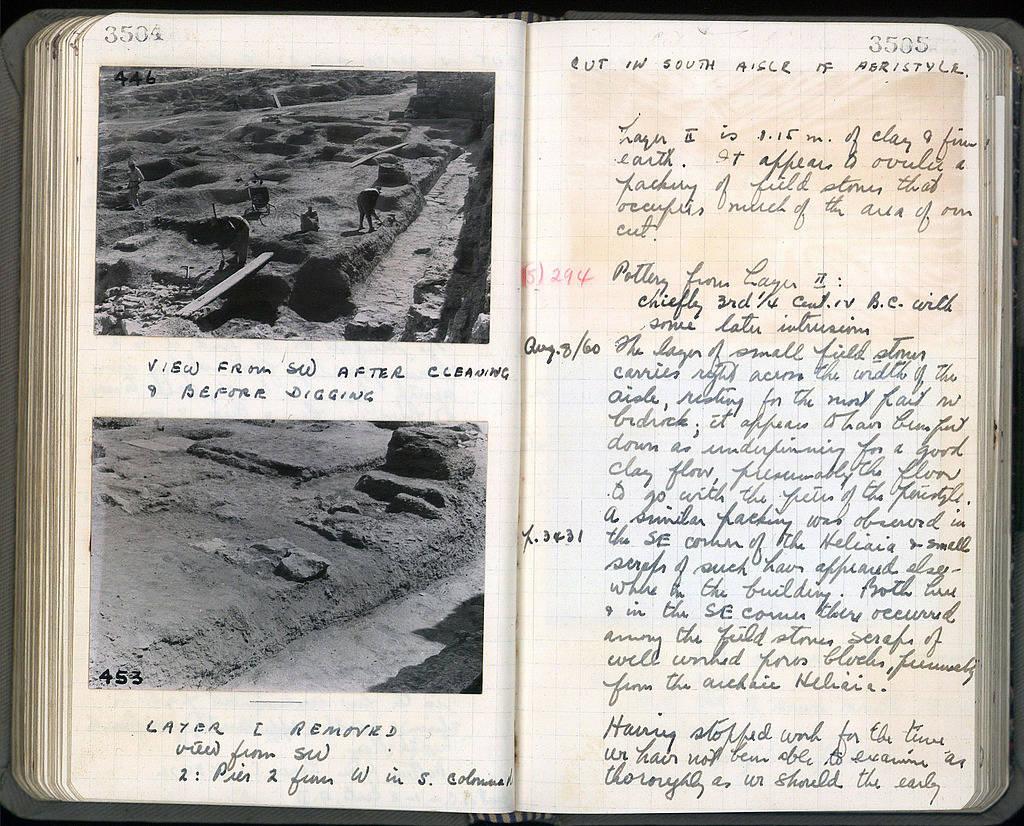 3504
446
VIEW FROM SW AFTER CLEANING
& BEFORE DIGGING
453
LAYER I REMOVED
view from SW
2: Pier 2 from W in S. colonna
3505
CUT IN SOUTH AISLE OF PERISTYLE.
Layer II is 0.15 m. of clay & fine
earth. It appears to overlie a
packing of field stones that
occupies much of the area of our
cut.
(5) 294
Pottery from Layer II:
chiefly 3rd ¼ cent. IV B.C. with
some later intrusions
Aug. 8/60
The layer of small field stones
carries right across the width of the
aisle, resting for the most part on
bedrock; it appears to have been put
down as underpinning for a good
clay floor, presumably the floor
to go with the piers of the peristyle.
A similar packing was observed in
p. 3431
the SE corner of the Heliaia & small
scraps of such have appeared else-
where in the building. Both here
& in the SE corner there occurred
among the field stones scraps of
well worked poros blocks, presumably
from the archaic Heliaia.
Having stopped work for the time
we have not been able to examine as
thoroughly as we should the early